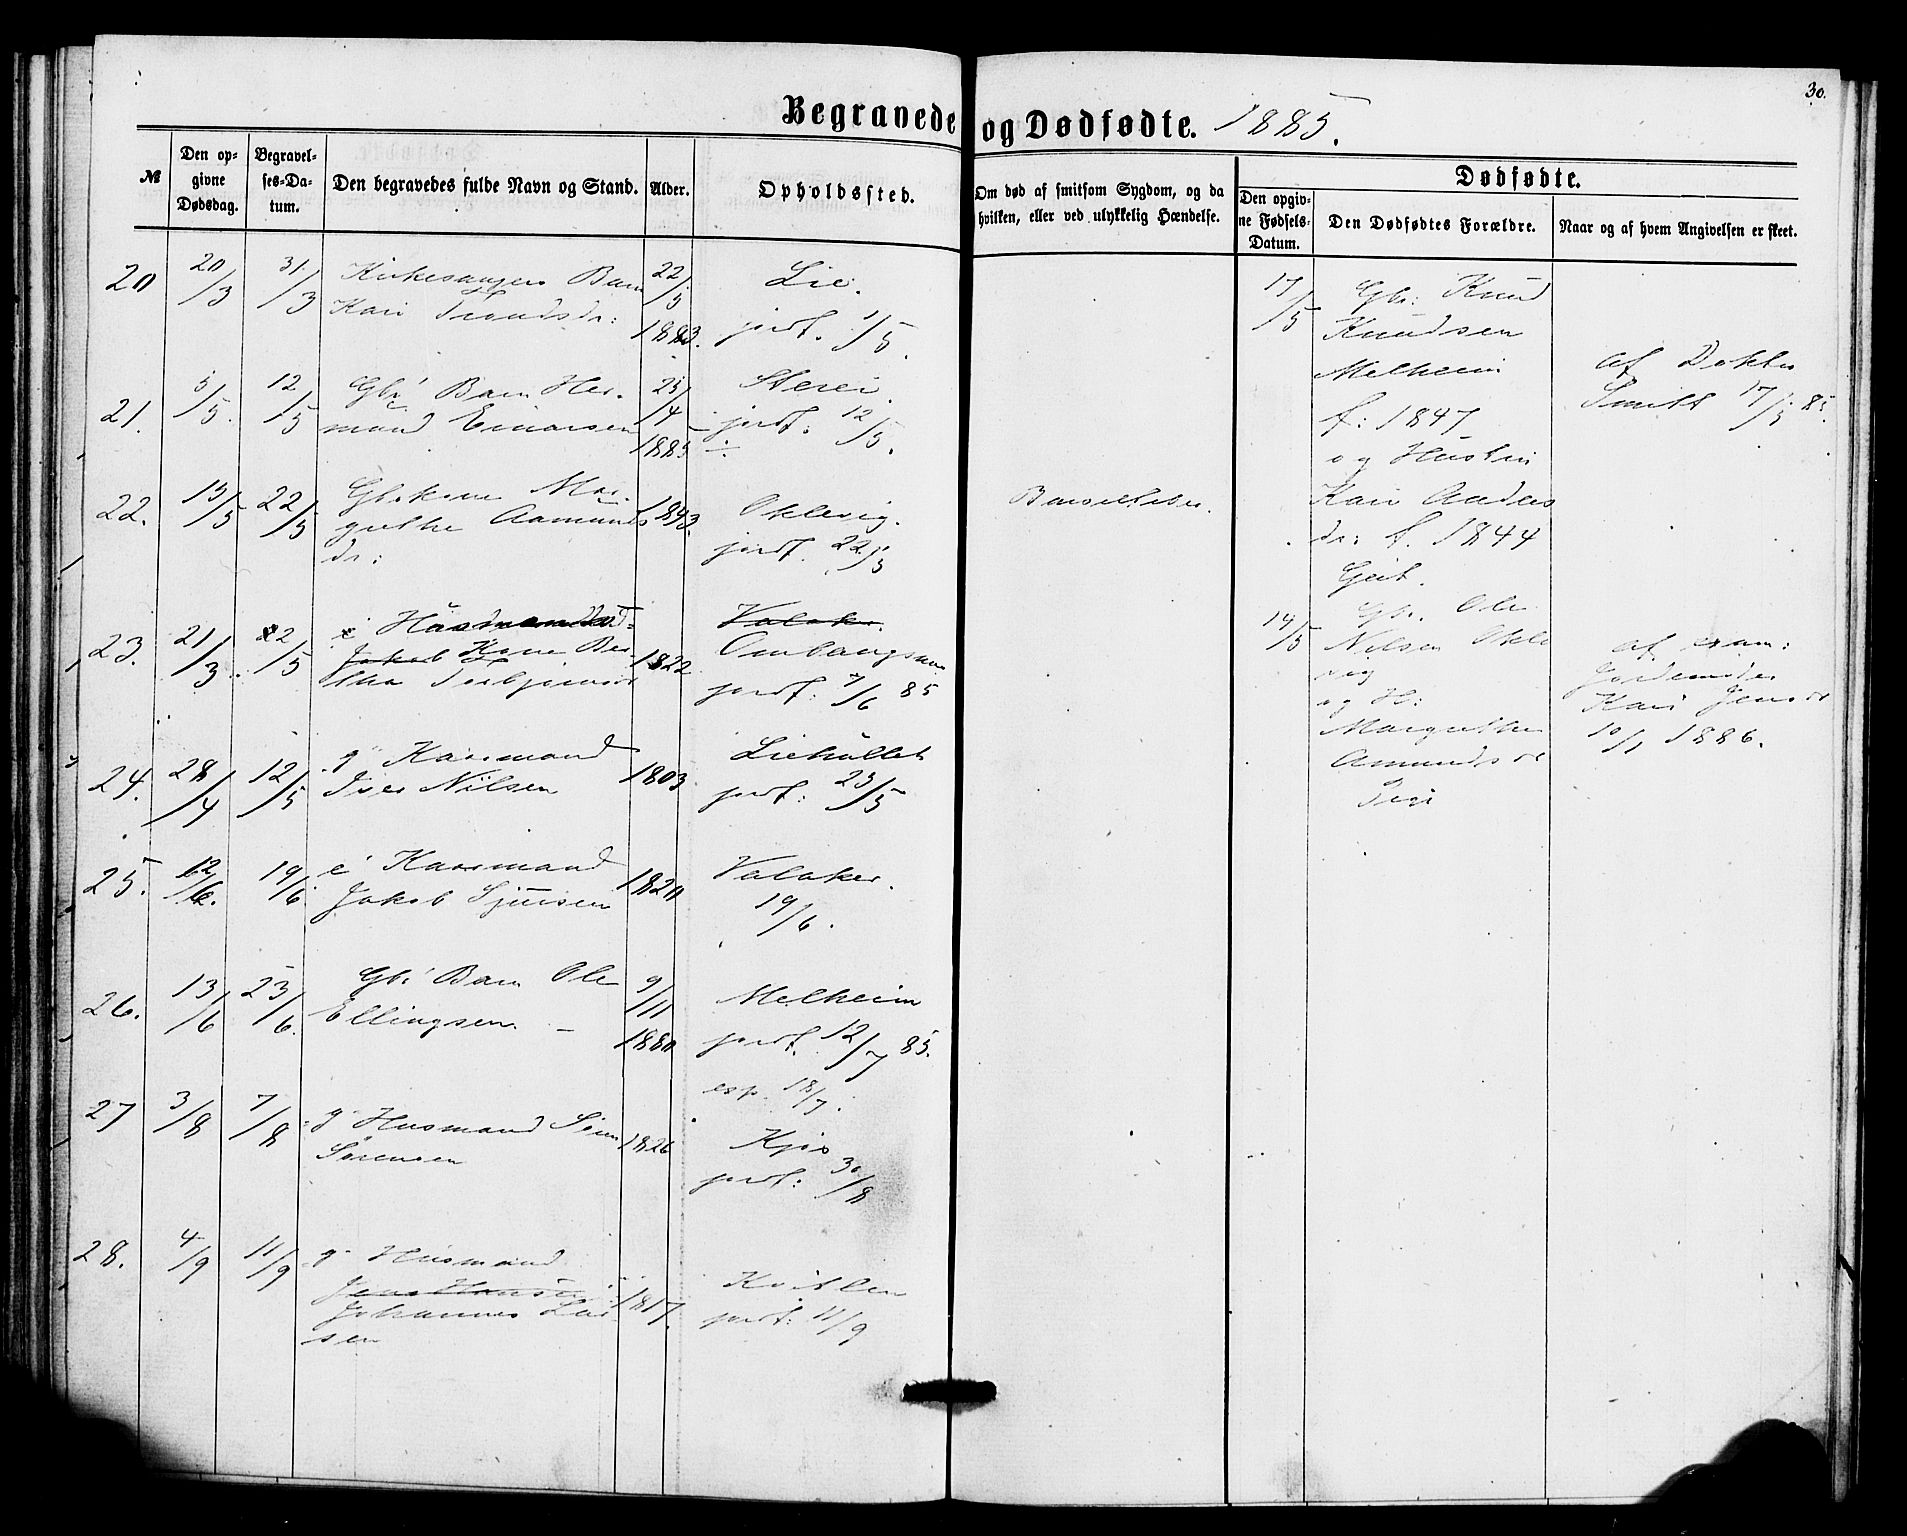 30.
Begravede og Dødfødte. 1885.
№
Den opgivne Dødsdag.
Begravelses-Datum.
Den begravedes fulde Navn og Stand.
Alder.
Opholdssted.
Om død af smitsom Sygdom, og da hvilken, eller ved ulykkelig Hændelse.
Dødfødte.
Den opgivne Fødsels-Datum.
Den Dødfødtes Forældre.
Naar og af hvem Angivelsen er skeet.
20 20/3 31/3 Kirkesanger Barn 22/5 Lie.
Kari Trondsdr: 1883. jordf. 1/5.
21. 5/5. 12/5 Gbr' Barn Her- 25/4 
mund Einarsen 1885 jordf. 12/5.
22. 15/5 22/5 Gbrkone Mar- 1843. Oklevig. Barselfeber.
grethe Aamunds
dr: jordf. 22/5
23. 21/3 22/5 Valaker.
Jakob Kone Ber- 1822 Ombangsm
tha Torbjørnsdr jordf: 7/6 85
24. 28/4 12/5 g" Kaarmand 1803 Liehullet
Iver Nilsen jordf: 23/5
25. 12/6. 19/6 e' Kaarmand 1820 Valaker.
Jakob Sjursen 19/6.
26. 13/6 23/6. Gbr' Barn Ole 9/11 Melheim
Ellingsen. – 1880 jordf. 12/7 85.
esp. 18/7.
27 3/8 7/8 g' Husmand 1826 Kjos
Sørensen jordf: 30/8
28. 4/9 11/9 g' Husmand
Jens Hansen 1817. Kvitlen
Johannes Lar jordf: 11/9
sen
17/5 Gbr: Knud
Knudsen
Melheim af Doktor
f: 1847 Smitt 17/5 85.
og Hustru
Kari Anders
dr: f. 1844
Geit.
14/5 Gbr. Ole
Nilsen Okle af exam:
vig Jordemoder
og H: Kari Jensdr
Margrethe 10/1 1886.
Amundsdr